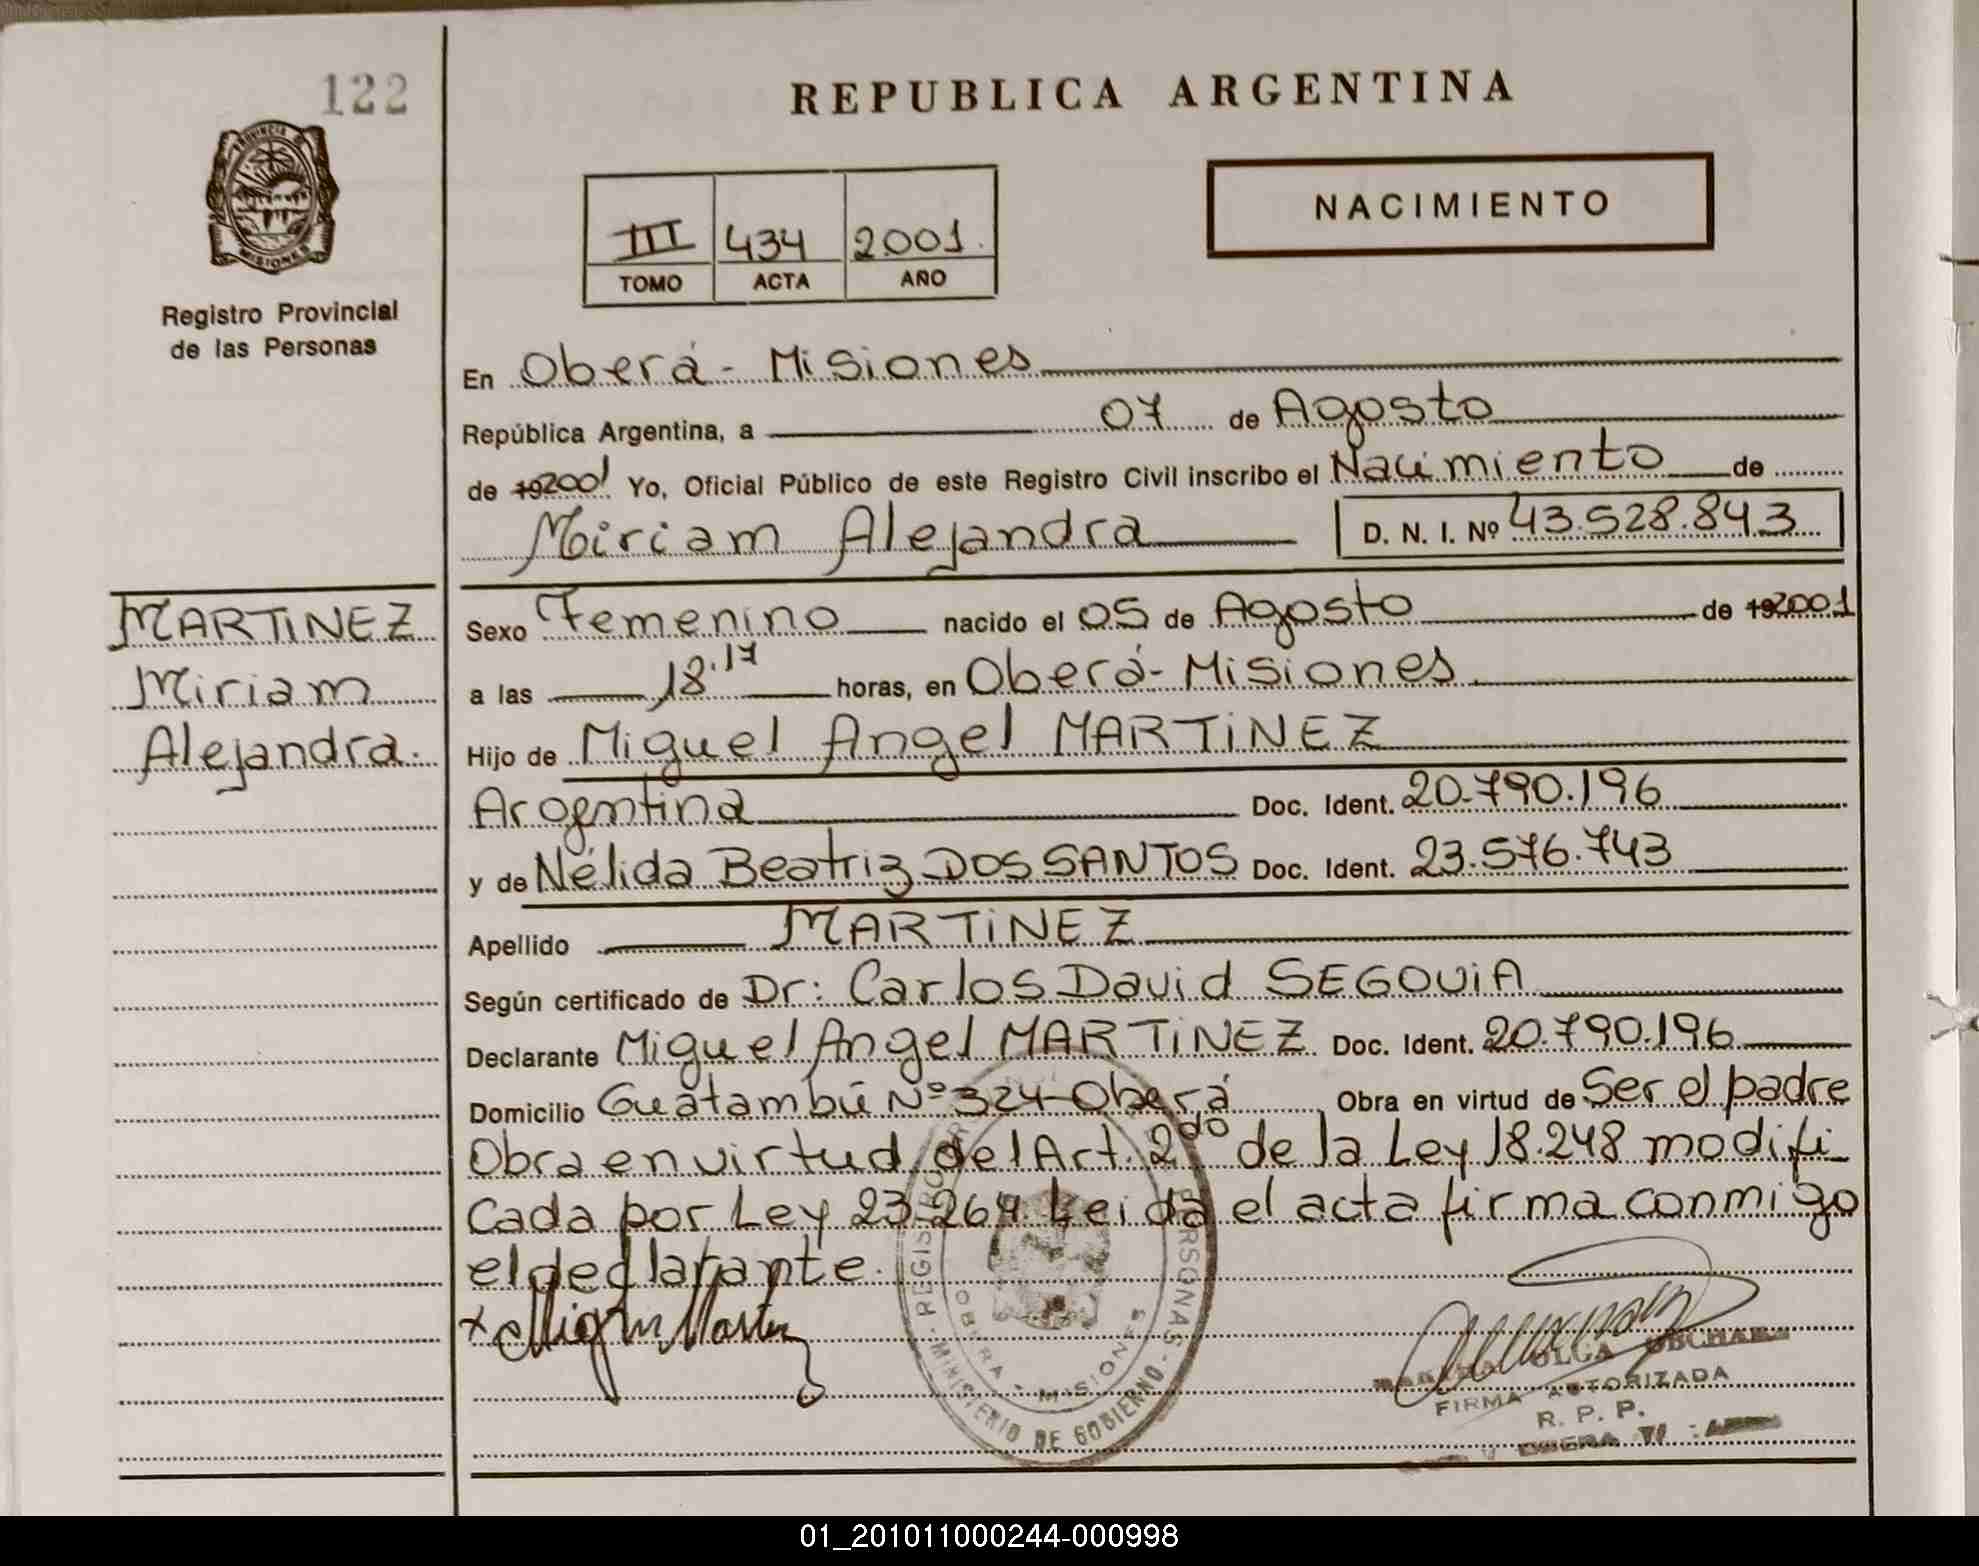 122
REPUBLICA ARGENTINA
PROVINCIA D
MISIONES
NACIMIENTO
III 434 2001
TOMO ACTA AÑO
Registro Provincial
de las Personas
En Oberá - Misiones
República Argentina, a 07 de Agosto
de 19 2001 Yo, Oficial Público de este Registro Civil inscribo el Nacimiento de
Miriam Alejandra D. N. I. Nº 43.528.843
MARTiNEZ
Miriam
Alejandra.
Sexo Femenino nacido el 05 de Agosto de 19 2001
a las 18.17 horas, en Oberá - Misiones
Hijo de Miguel Angel MARTiNEZ
Argentina Doc. Ident. 20.790.196
y de Nélida Beatriz DOS SANTOS Doc. Ident. 23.576.743
Apellido MARTiNEZ
Según certificado de Dr: Carlos David SEGOViA
Declarante Miguel Angel MARTiNEZ Doc. Ident. 20.790.196
Domicilio Guatambú Nº 324-Oberá Obra en virtud de Ser el padre
Obra en virtud del Art. 2do de la Ley 18.248 modifi
cada por Ley 23.264. Leida el acta firma conmigo
el declarante.
REGISTRO PERSONAS - MINISTERIO DE GOBIERNO -
OBERA - MISIONES
OLGA
FIRMA AUTORIZADA
R. P. P.
OBERA
01_201011000244-000998